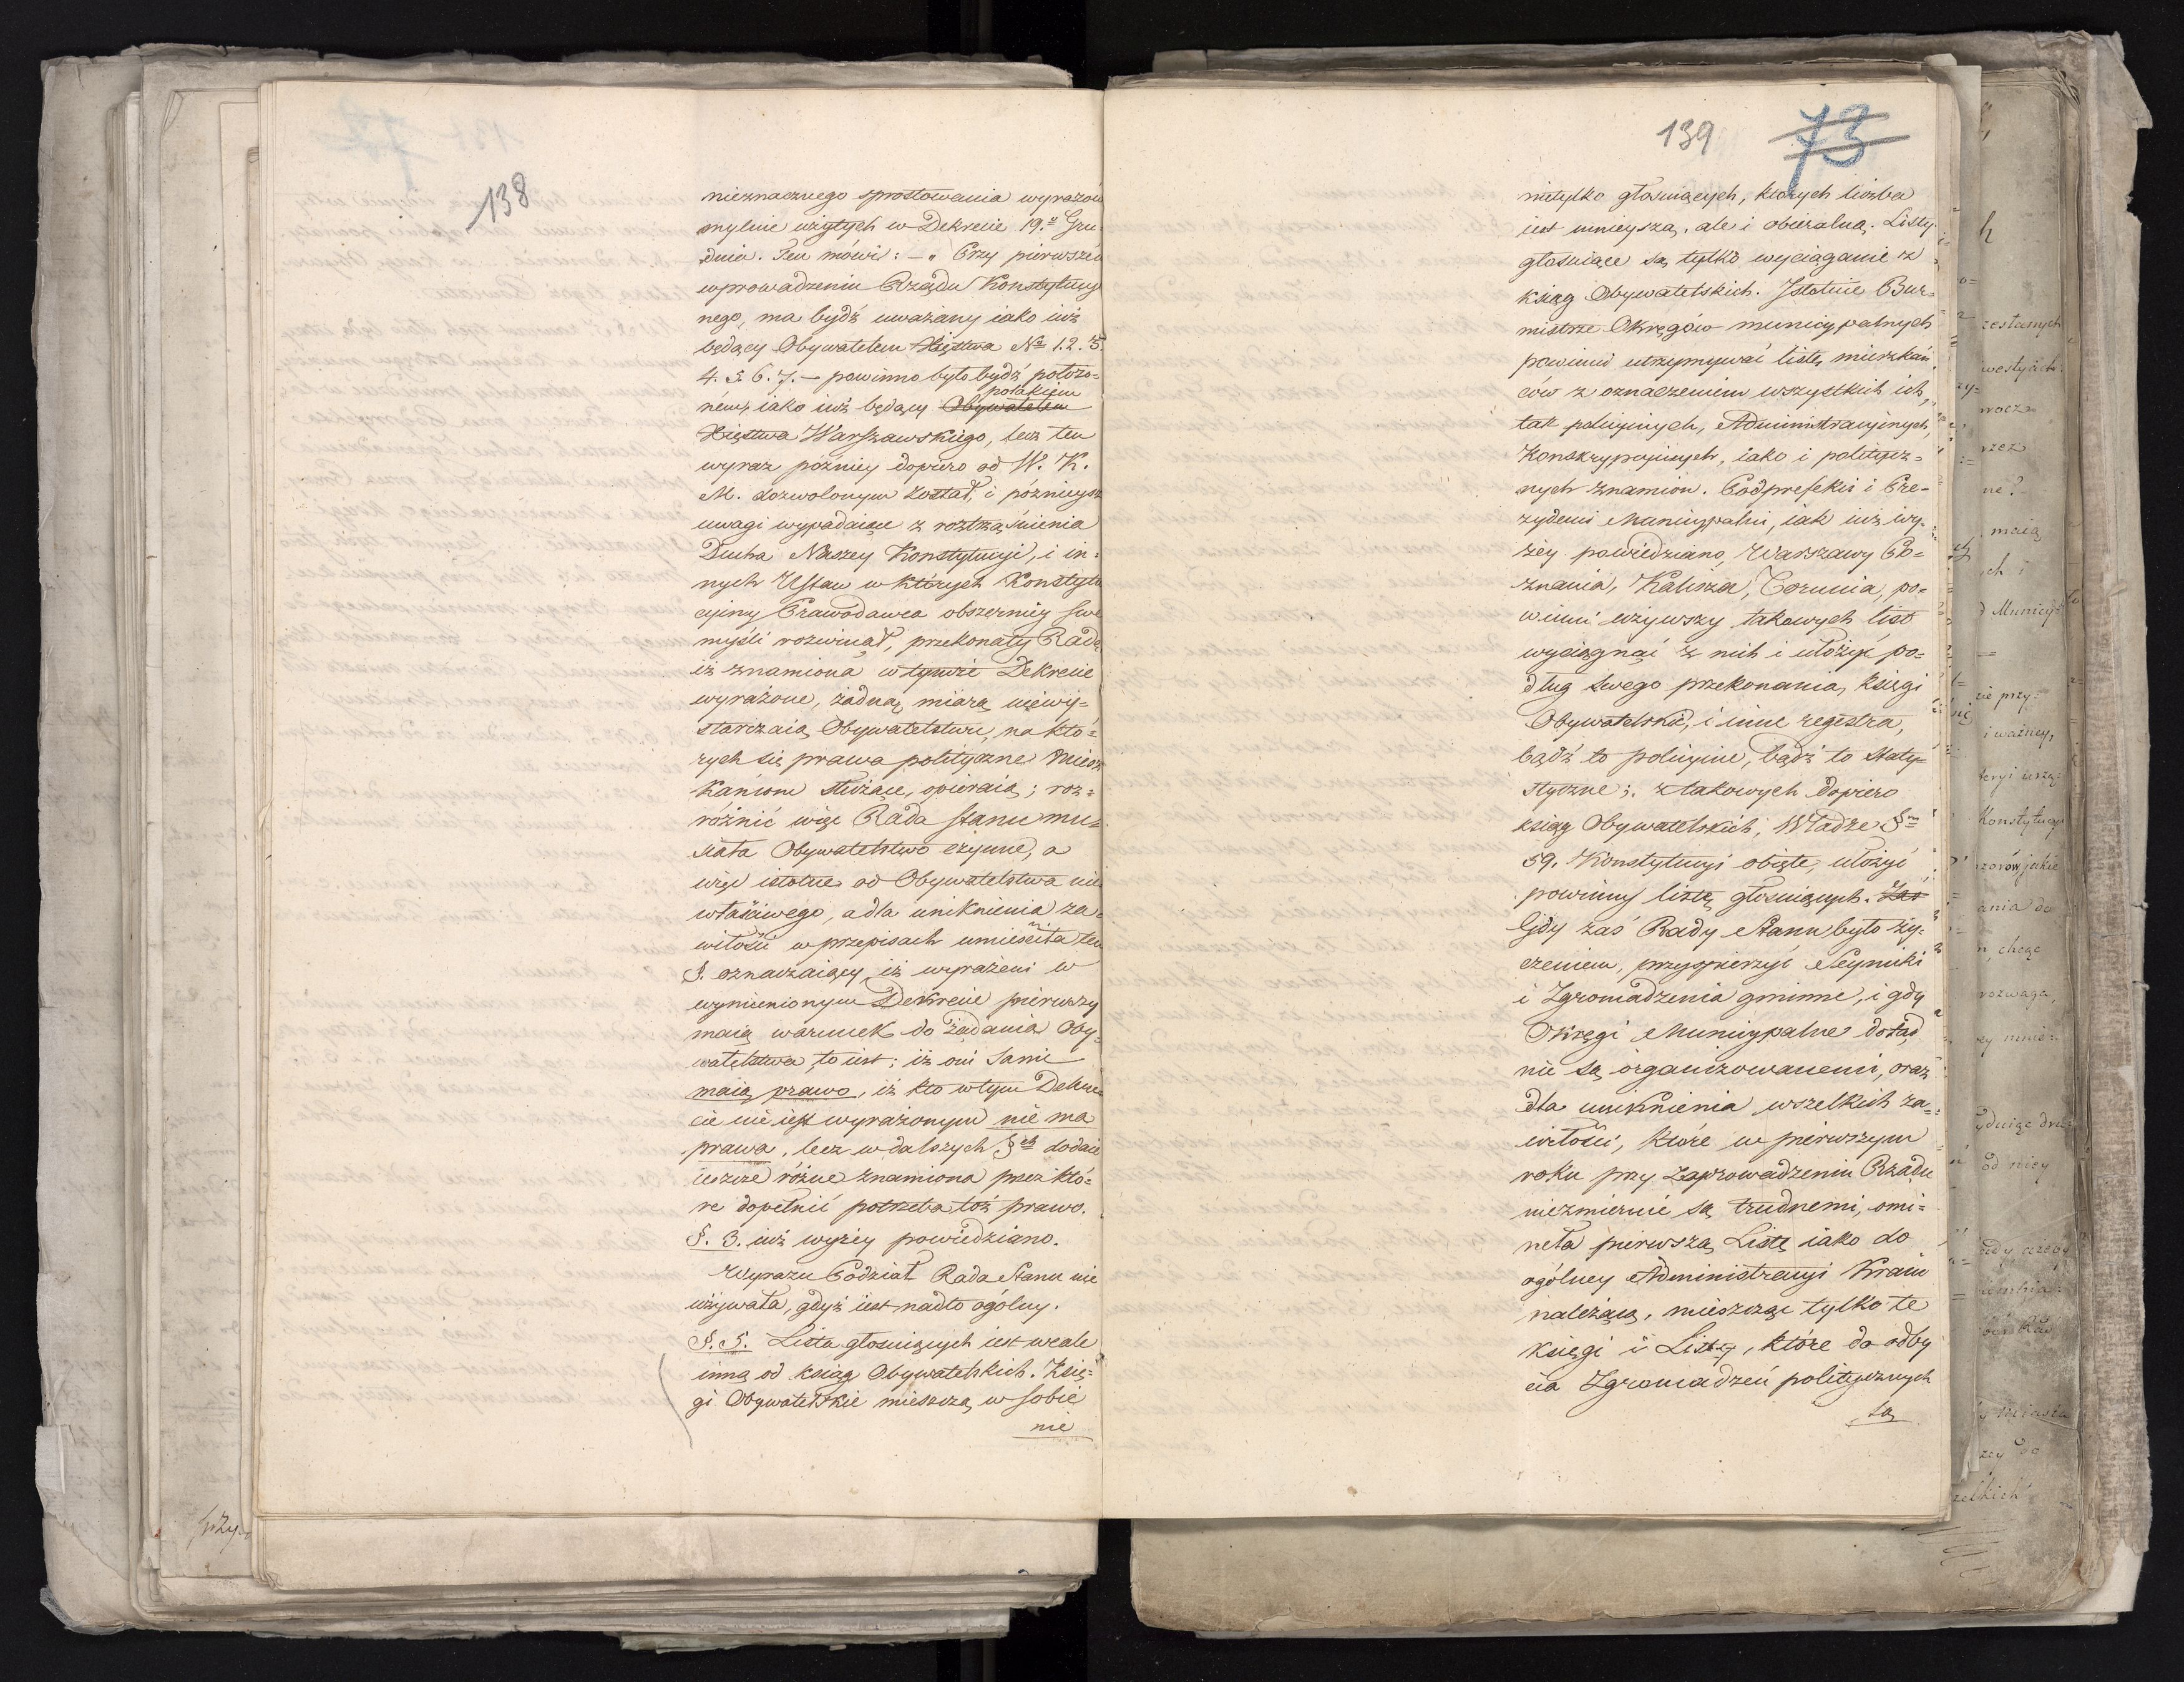 138
nieznacznego sprostowania wyrazów
mylnie użytych w Dekrecie 19.º Gru
dnia. Ten mówi: – „ Przy pierwszém
wprowadzeniu Rządu Konstytucy
nego, ma bydź uważany iako iuż
będący Obywatelem Xięstwa № 1. 2. 3.
4. 5. 6. 7. – powinno było bydź położo=
polakiem
ném, iako iuż będący Obywatelem
Xięstwa Warszawskiego, lecz ten
wyraz późniey dopiero od W. K.
M. dozwolonym został, i późnieysze
uwagi wypadaiące z roztrząśnienia
Ducha Naszey Konstytucyi, i in=
nych Ustaw w których Konstytu
cyiny Prawodawca obszerniey swe
myśli rozwinął, przekonały Radę
iż znamiona w tymże Dekrecie
wyrażone, żadną miarą niewy=
starczaią Obywatelstwu, na któ=
rych się prawa polityczne Miesz
kańcom służące, opieraią; roz=
różnić więc Rada Stanu mu=
siała Obywatelstwo czynne, a
więc istotne od Obywatelstwa nie
właściwego, a dla uniknienia za
wiłości w przepisach umieściła ten
§. oznaczaiący, iż wyrażeni w
wymienionym Dekrecie pierwszy
maią warunek do żądania Oby=
watelstwa, to iest: iż oni Sami
maią prawo, iż kto w tym Dekre
cie nie iest wyrażonym nie ma
prawa, lecz w dalszych §ch dodaie
ieszcze różne znamiona przez któ=
re dopełnić potrzeba toż prawo.
§. 3. iuż wyżey powiedziano.
Wyrazu Podział Rada Stanu nie
używała, gdyż iest nadto ogólny.
§. 5. Lista głosuiących iest wcale
inną od ksiąg Obywatelskich. Księ=
gi Obywatelskie mieszczą w sobie
nie
139 73
nietylko głosuiących, których liczba
iest mnieyszą, ale i obieralną. Listy
głosuiące są tylko wyciąganie z
ksiąg Obywatelskich. Istotnie Bur=
mistrze Okręgów municypalnych
powinni utrzymywać listę mieszkań
ców z oznaczeniem wszystkich ich,
tak policyinych, Administracyinych,
Konskrypcyinych, iako i politycz=
nych znamion. Podprefekci i Pre=
zydenci Municypalni, iak iuż wy=
żey powiedziano, Warszawy Po=
znania, Kalisza, Torunia, po=
winni używszy takowych list
wyciągnąć z nich i ułożyć po=
dług swego przekonania, księgi
Obywatelskie, i inne regestra,
bądź to policyine, bądź to Staty=
styczne; z takowych dopiero
ksiąg Obywatelskich, Władze §m
59. Konstytucyi obięte, ułożyć
powinny listę głosuiących. Zaś
Gdy zaś Rady Stanu było ży=
czeniem, przyspieszyć Seymiki
i Zgromadzenia gminne, i gdy
Okręgi Municypalne dotąd
nie są organizowanemi, oraz
dla uniknienia wszelkich za=
wiłości, które w pierwszym
roku przy zaprowadzeniu Rządu
niezmiernie są trudnemi, omi=
neła pierwszą Listę iako do
ogólney Administracyi Kraiu
należącą, mieszcząc tylko te
księgi i Listy, które do odby
cia Zgromadzeń politycznych
są